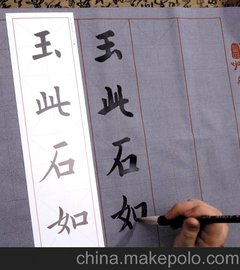 玉此石如
玉此石如
china.makepolo.com